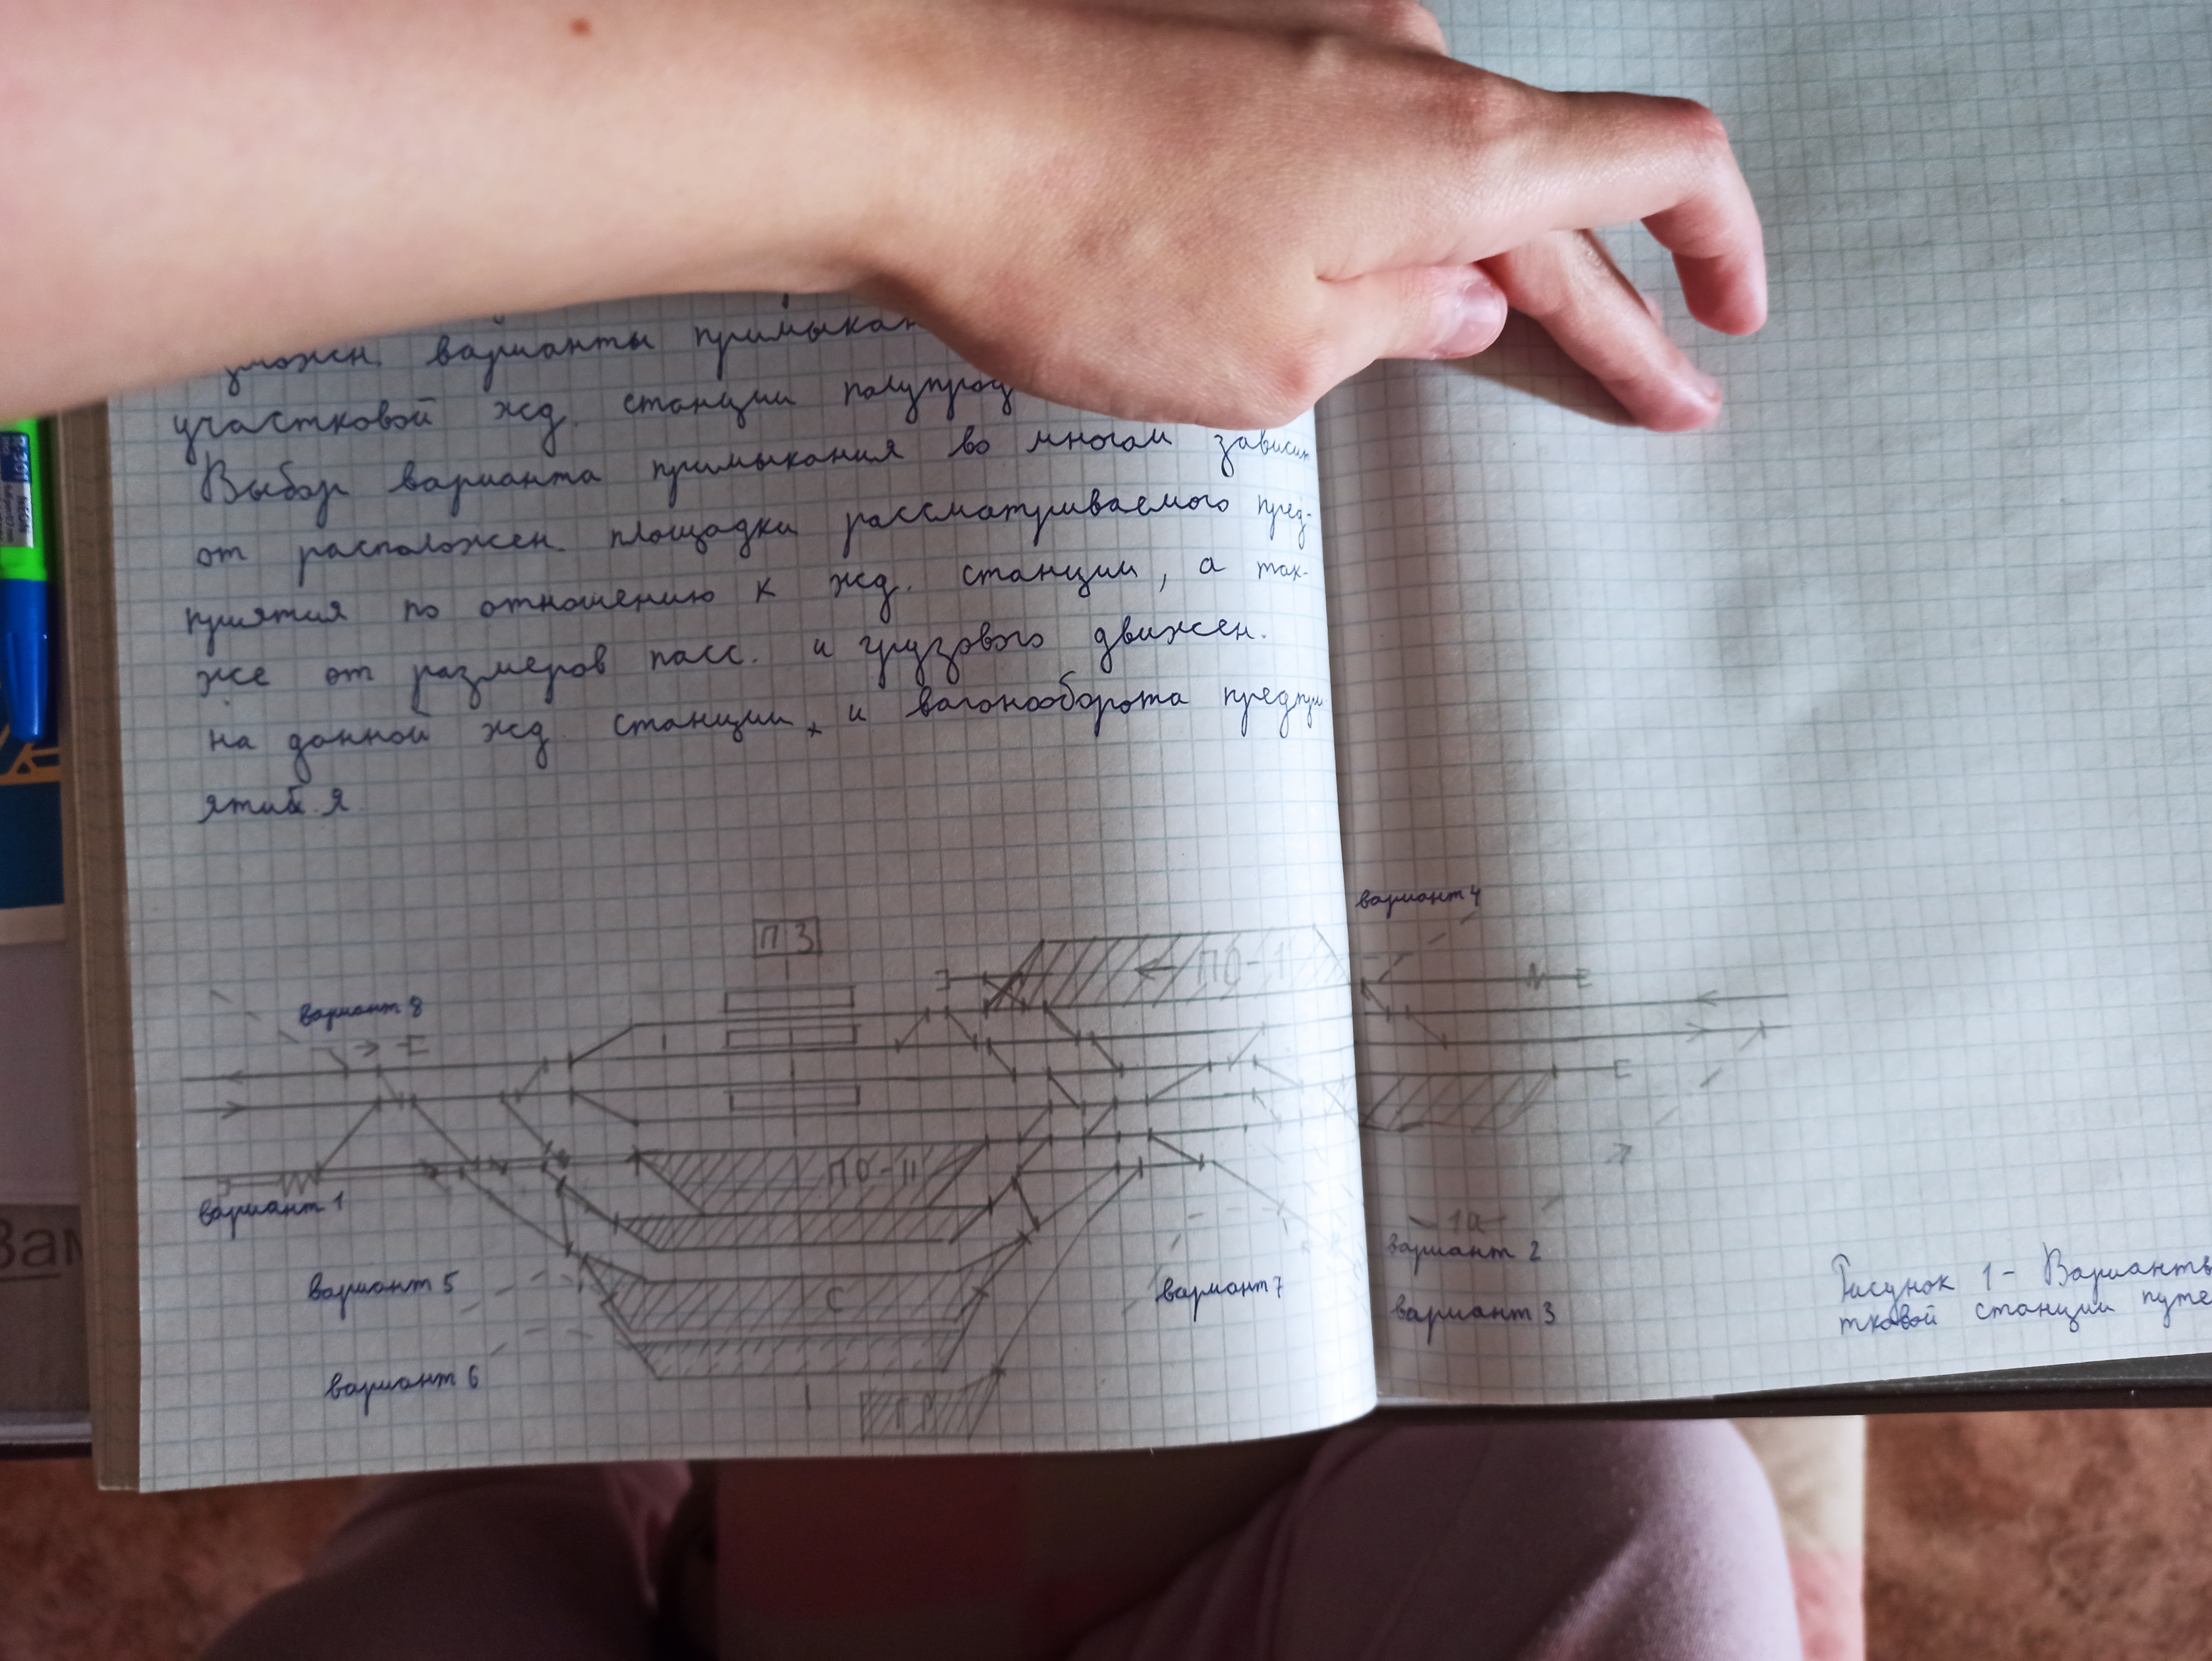 варианты примыкан
участковой жд. станции полупрод
Выбор варианта примыкания во многом зависит
от расположен. площадки рассматриваемого пред-
приятия по отношению к жд. станции, а так-
же от размеров пасс. и грузового движен.
на данной жд. станции и вагонооборота предпри
ятия
вариант 4
ПЗ
ПО-I
вариант 8
ПО-II
вариант 1
1а
вариант 2
вариант 5
С
вариант 7
вариант 3
вариант 6
ГР
Рисунок 1 - Варианты
тковой станции путе
Зам